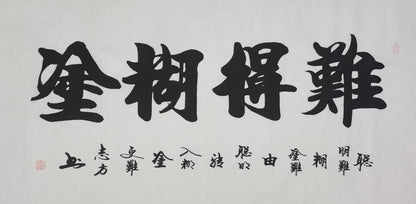 難得糊塗
聰明難糊塗難由聰明转入糊塗更難志方书